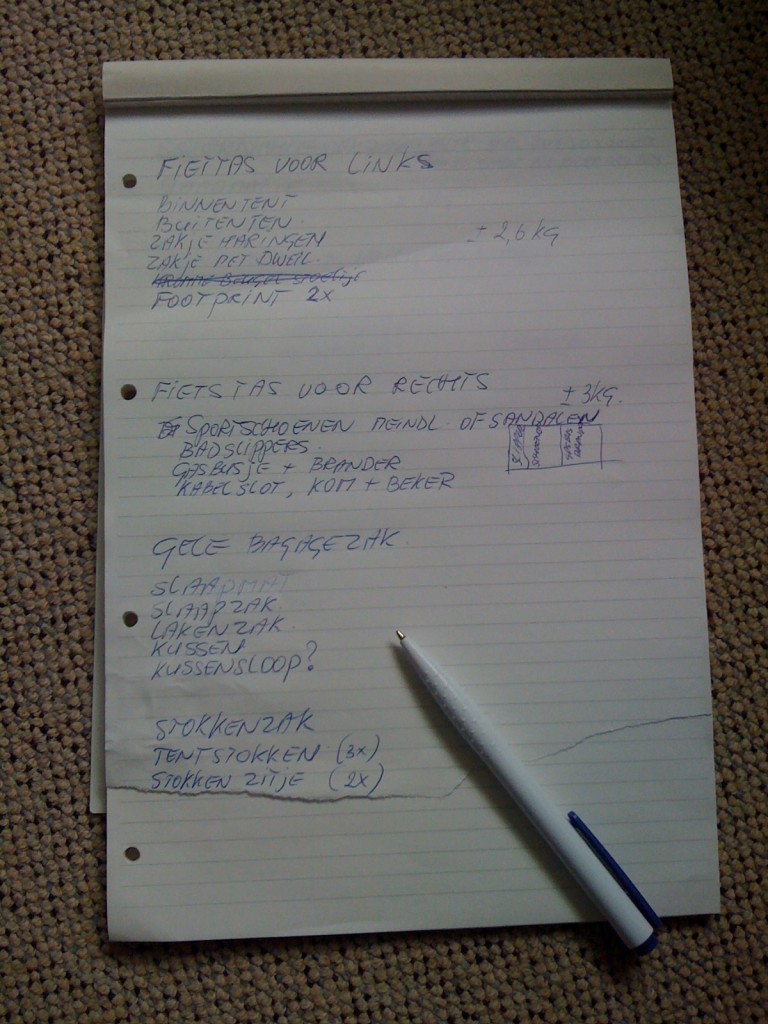 FIETTAS VOOR LINKS
BINNENTENT
BUITENTEN
ZAKJE HARINGEN
± 2,6 KG
ZAKJE MET DWEIL.
FOOTPRINT 2X
FIETSTAS VOOR RECHTS
± 3KG.
SPORTSCHOENEN MEINDL OF SANDALEN
BADSLIPPERS.
GASBUSJE + BRANDER
KABELSLOT, KOM + BEKER
GELE BAGAGEZAK.
SLAAPMAT
SLAAPZAK
LAKENZAK.
KUSSEN
KUSSENSLOOP?
STOKKENZAK
TENTSTOKKEN (3X)
STOKKEN ZITJE (2X)